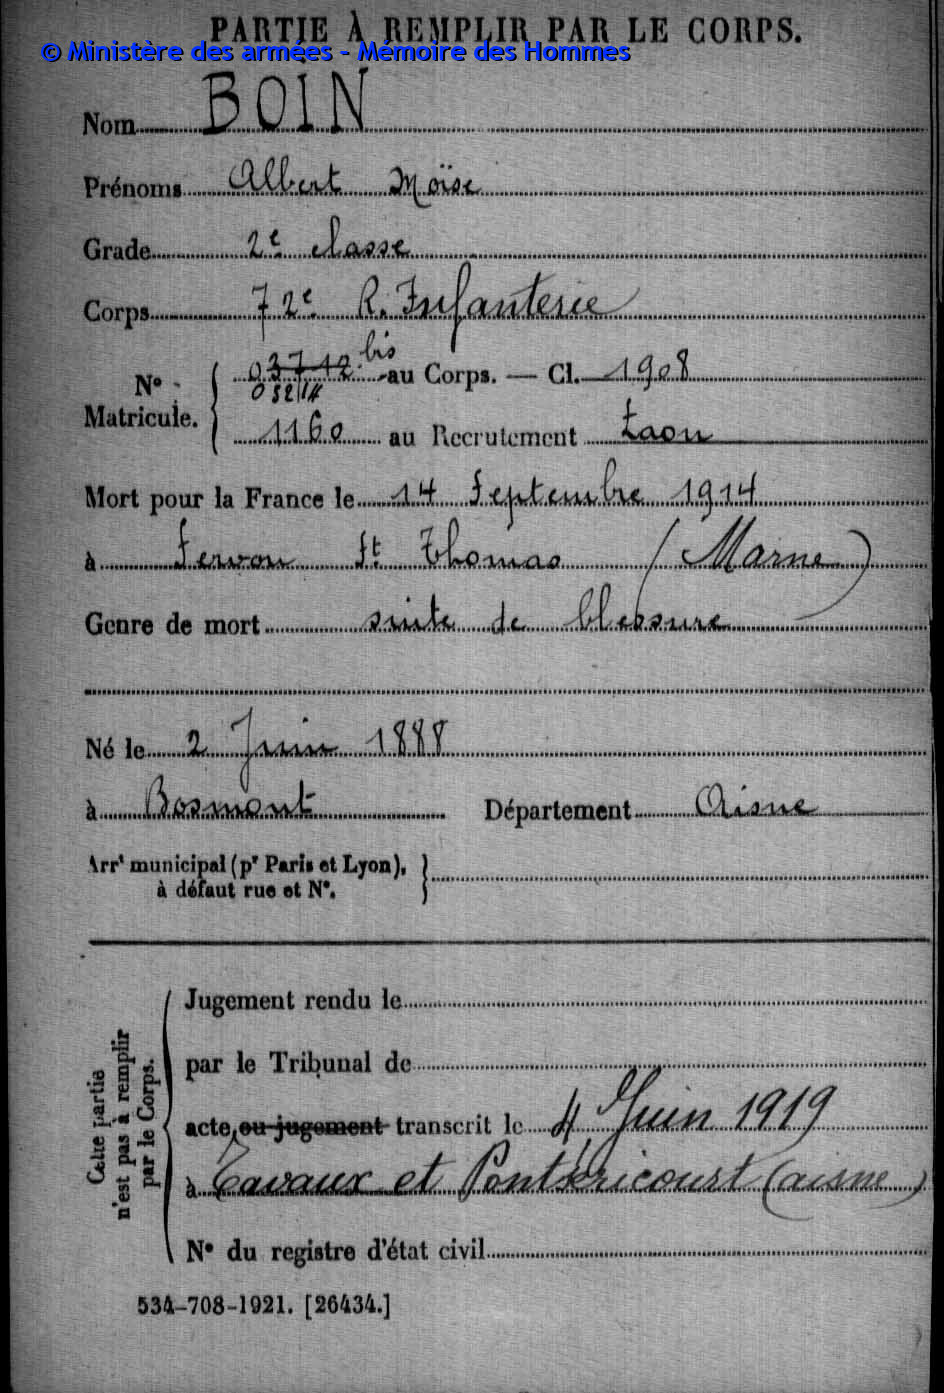 PARTIE À REMPLIR PAR LE CORPS.
© Ministère des armées - Mémoire des Hommes
Nom BOIN
Prénoms Albert Moïse
Grade 2e classe
Corps 72e R. Infanterie
No Matricule. 03712 bis au Corps. — Cl. 1908
05214
1160 au Recrutement Laon
Mort pour la France le 14 Septembre 1914
à Servon St Thomas (Marne)
Genre de mort suite de blessure
Né le 2 Juin 1888
à Bosmont Département Aisne
Arrt municipal (pr Paris et Lyon),
à défaut rue et No.
Cette partie n'est pas à remplir par le Corps.
Jugement rendu le
par le Tribunal de
acte ou jugement transcrit le 4 Juin 1919
à Tavaux et Pontséricourt (aisne)
No du registre d'état civil
534-708-1921. [26434.]